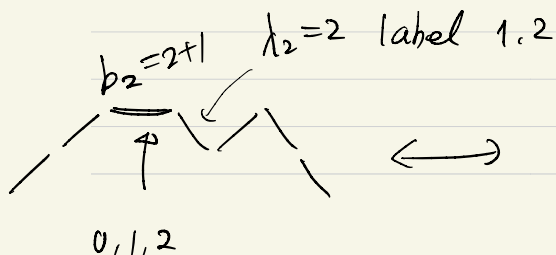 b₂=2+1 λ₂=2 label 1,2
0,1,2